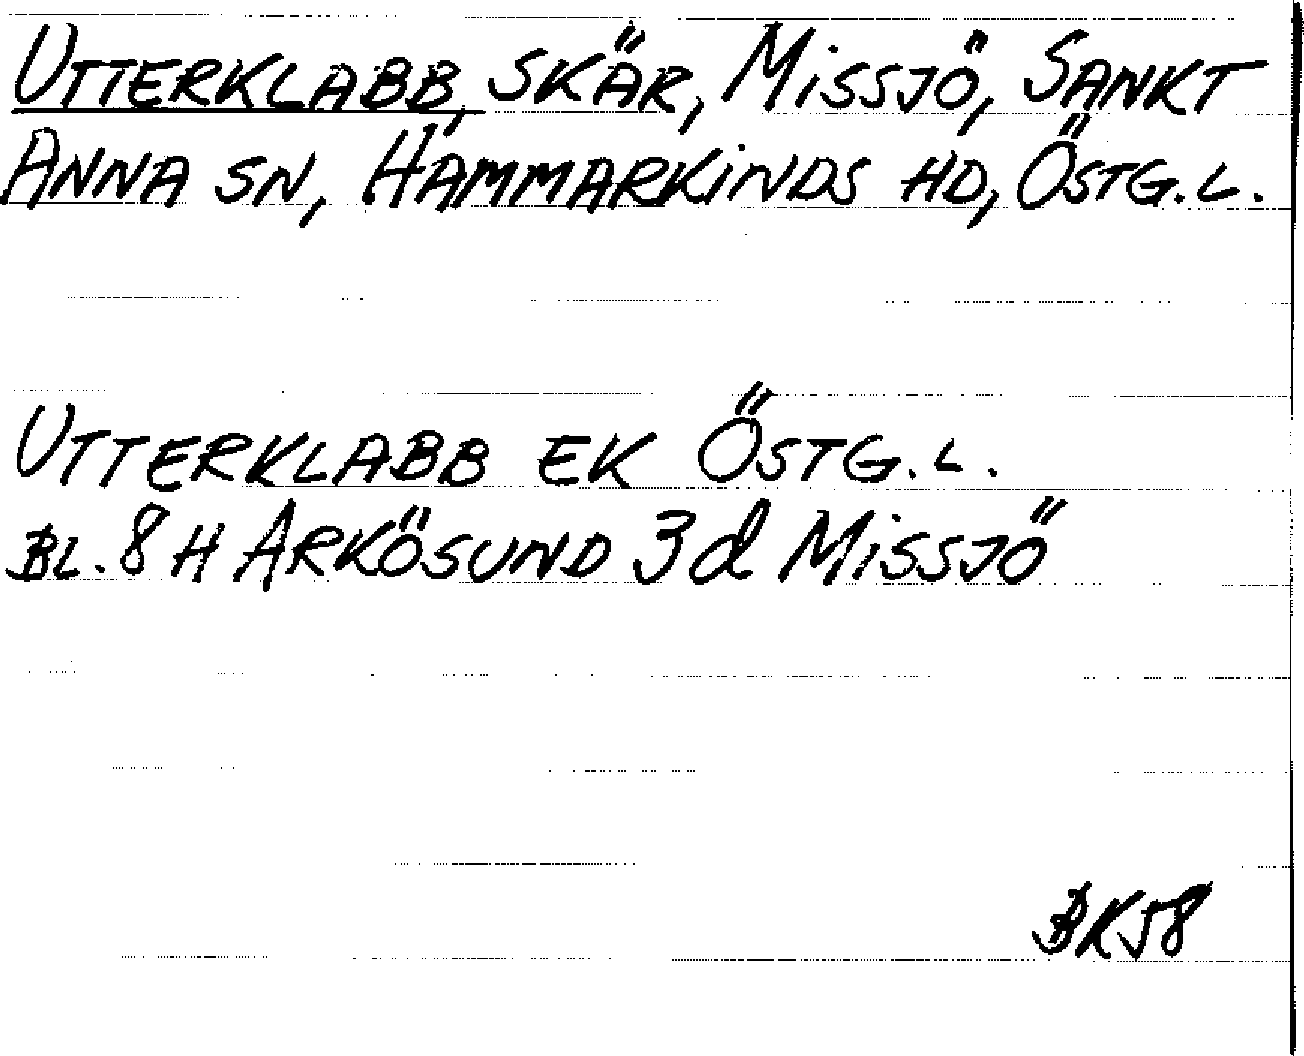 UTTERKLABB, SKÄR, MISSJÖ, SANKT
ANNA SN, HAMMARKINDS HD, ÖSTG.L.
UTTERKLABB EK ÖSTG.L.
BL. 8 H ARKÖSUND 3d MISSJÖ
BK58